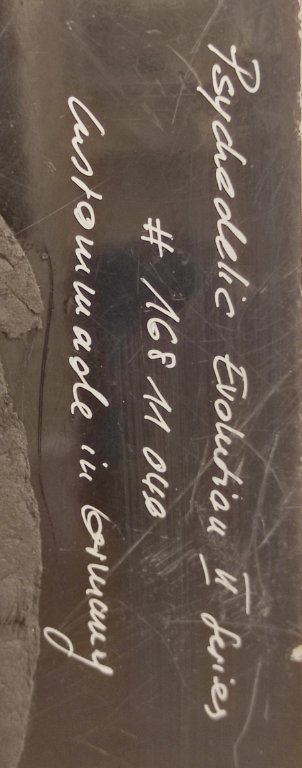 Psychedelic Evolution II Series
# 168 11 040
Custommade in Germany